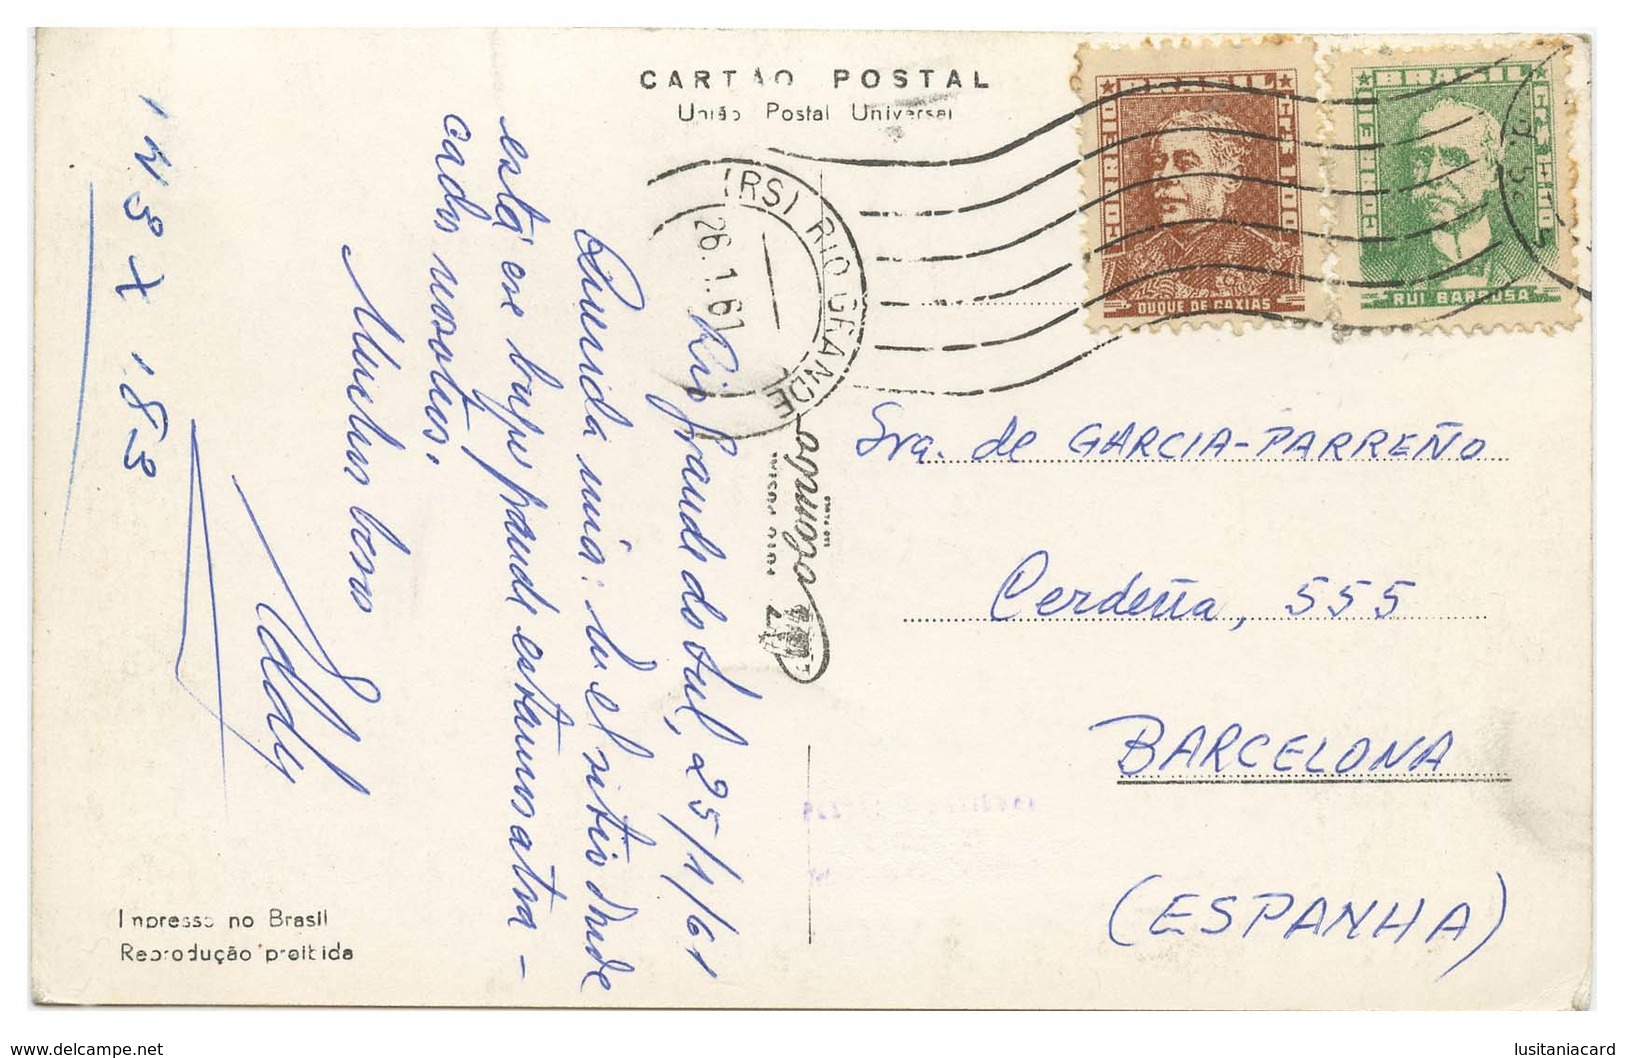 CARTÃO POSTAL
União Postal Universal
BRASIL
CORREIO
CR$ 1,00
DUQUE DE CAXIAS
BRASIL
CORREIO
RUI BARBOSA
(RS) RIO GRANDE
26.1.61
Rio Grande do Sul, 25/1/61
Querida mia: En el sitio donde
está ese buque grande estamos atra-
cados nosotros.
Muchos besos
Eddy
Sra. de GARCIA-PARREÑO
Cerdeña, 555
BARCELONA
(ESPANHA)
Impresso no Brasil
Reprodução proibida
www.delcampe.net
lusitaniacard